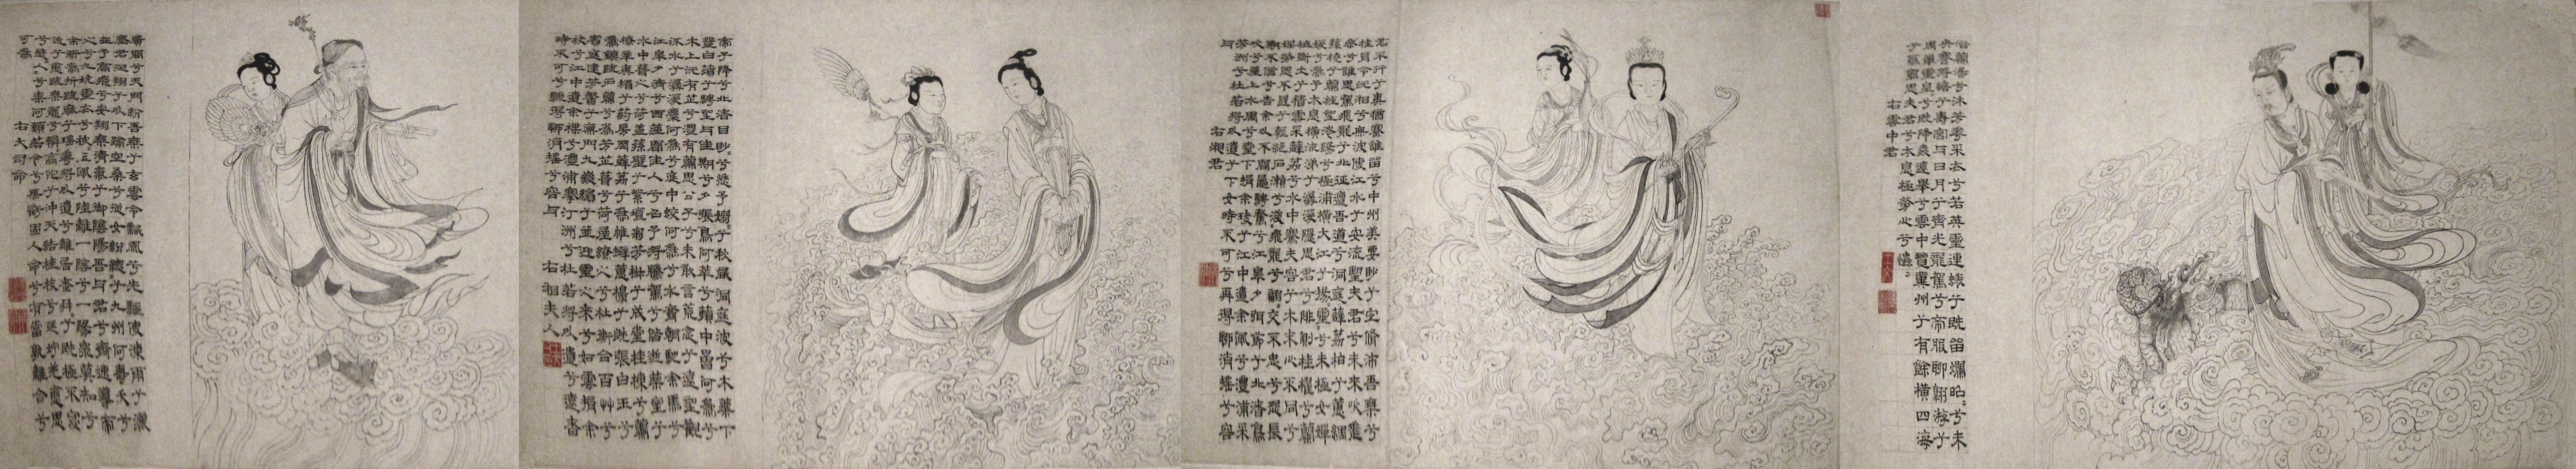 浴蘭湯兮沐芳華采衣兮若英靈連蜷兮既留爛昭昭兮未
央蹇將憺兮壽宮與日月兮齊光龍駕兮帝服聊翱遊兮
周章靈皇皇兮既降猋遠舉兮雲中覽冀州兮有餘橫四海
兮焉窮思夫君兮太息極勞心兮忡忡
右雲中君
君不行兮夷猶蹇誰留兮中州美要眇兮宜脩沛吾乘兮
桂舟令沅湘兮無波使江水兮安流望夫君兮未來吹參
差兮誰思駕飛龍兮北征邅吾道兮洞庭薜荔柏兮蕙綢
蓀橈兮蘭旌望涔陽兮極浦橫大江兮揚靈揚靈兮未極女嬋
媛兮為余太息橫流涕兮潺湲隱思君兮陫側桂櫂兮蘭
枻斲冰兮積雪采薜荔兮水中搴芙蓉兮木末心不同兮
媒勞恩不甚兮輕絕石瀨兮淺淺飛龍兮翩翩交不忠兮怨長
期不信兮告余以不閒鼂騁騖兮江皋夕弭節兮北渚鳥
次兮屋上水周兮堂下捐余玦兮江中遺余佩兮澧浦采
芳洲兮杜若將以遺兮下女時不可兮再得聊逍遙兮容
與
右湘君
帝子降兮北渚目眇眇兮愁予嫋嫋兮秋風洞庭波兮木葉下
登白薠兮騁望與佳期兮夕張鳥何萃兮蘋中罾何為兮
木上沅有芷兮澧有蘭思公子兮未敢言荒忽兮遠望觀
流水兮潺湲麋何為兮庭中蛟何為兮水裔朝馳余馬兮
江皋夕濟兮西澨聞佳人兮召予將騰駕兮偕逝築室兮
水中葺之兮荷蓋蓀壁兮紫壇播芳椒兮成堂桂棟兮蘭
橑辛夷楣兮藥房罔薜荔兮為帷擗蕙櫋兮既張白玉兮
為鎮疏石蘭兮為芳芷葺兮荷屋繚之兮杜衡合百艸兮
實庭建芳馨兮廡門九嶷繽兮並迎靈之來兮如雲捐余
袂兮江中遺余褋兮澧浦搴汀洲兮杜若將以遺兮遠者
時不可兮驟得聊逍遙兮容與
右湘夫人
廣開兮天門紛吾乘兮玄雲令飄風兮先驅使涷雨兮灑
塵君迴翔兮以下踰空桑兮從女紛總總兮九州何壽夭兮
在予高飛兮安翔乘清氣兮御陰陽吾與君兮齊速導帝
之兮九坑靈衣兮披披玉佩兮陸離一陰兮一陽眾莫知兮
余所為折疏麻兮瑤華將以遺兮離居老冉冉兮既極不寖
近兮愈疏乘龍兮轔轔高駝兮沖天結桂枝兮延竚羌愈思
兮愁人愁人兮奈何願若今兮無虧固人命兮有當孰離合兮
可為
右大司命